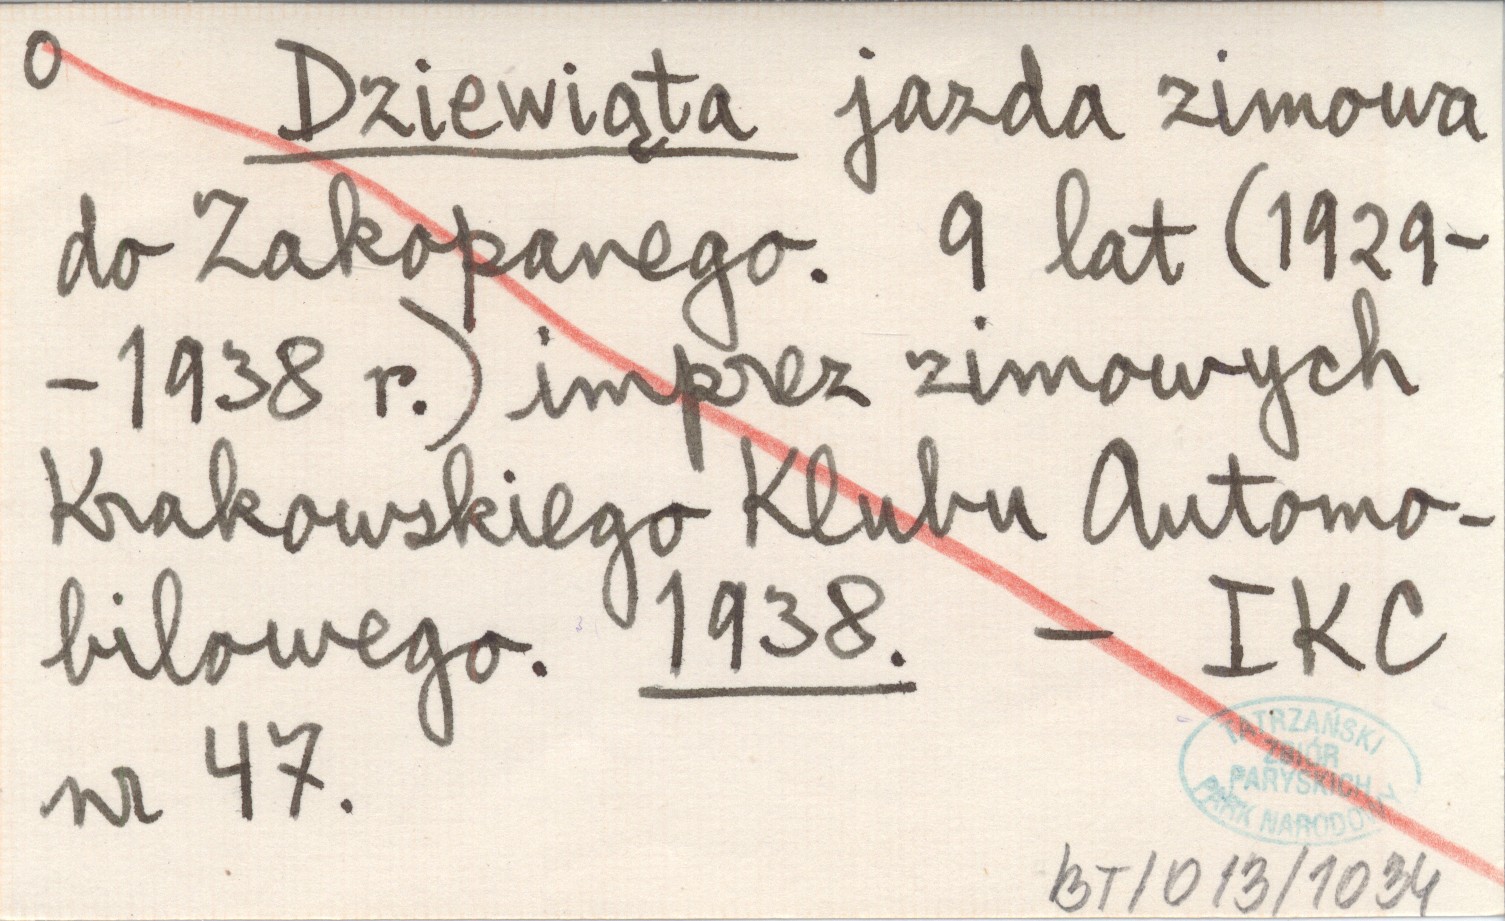 O Dziewiąta jazda zimowa
do Zakopanego. 9 lat (1929-
-1938 r.) imprez zimowych
Krakowskiego Klubu Automo-
bilowego. 1938. - IKC
nr 47.
TATRZAŃSKI
ZBIÓR
PARYSKICH
PARK NARODOWY
BT/013/1034